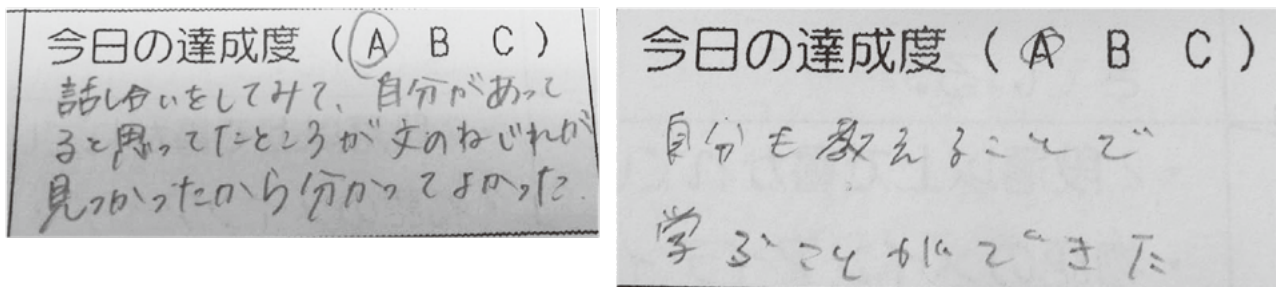 今日の達成度(A B C)
話し合いをしてみて、自分があって
ると思ってたところが文のねじれが
見つかったから分かってよかった.
今日の達成度(A B C)
自分も教えることで
学ぶことができた